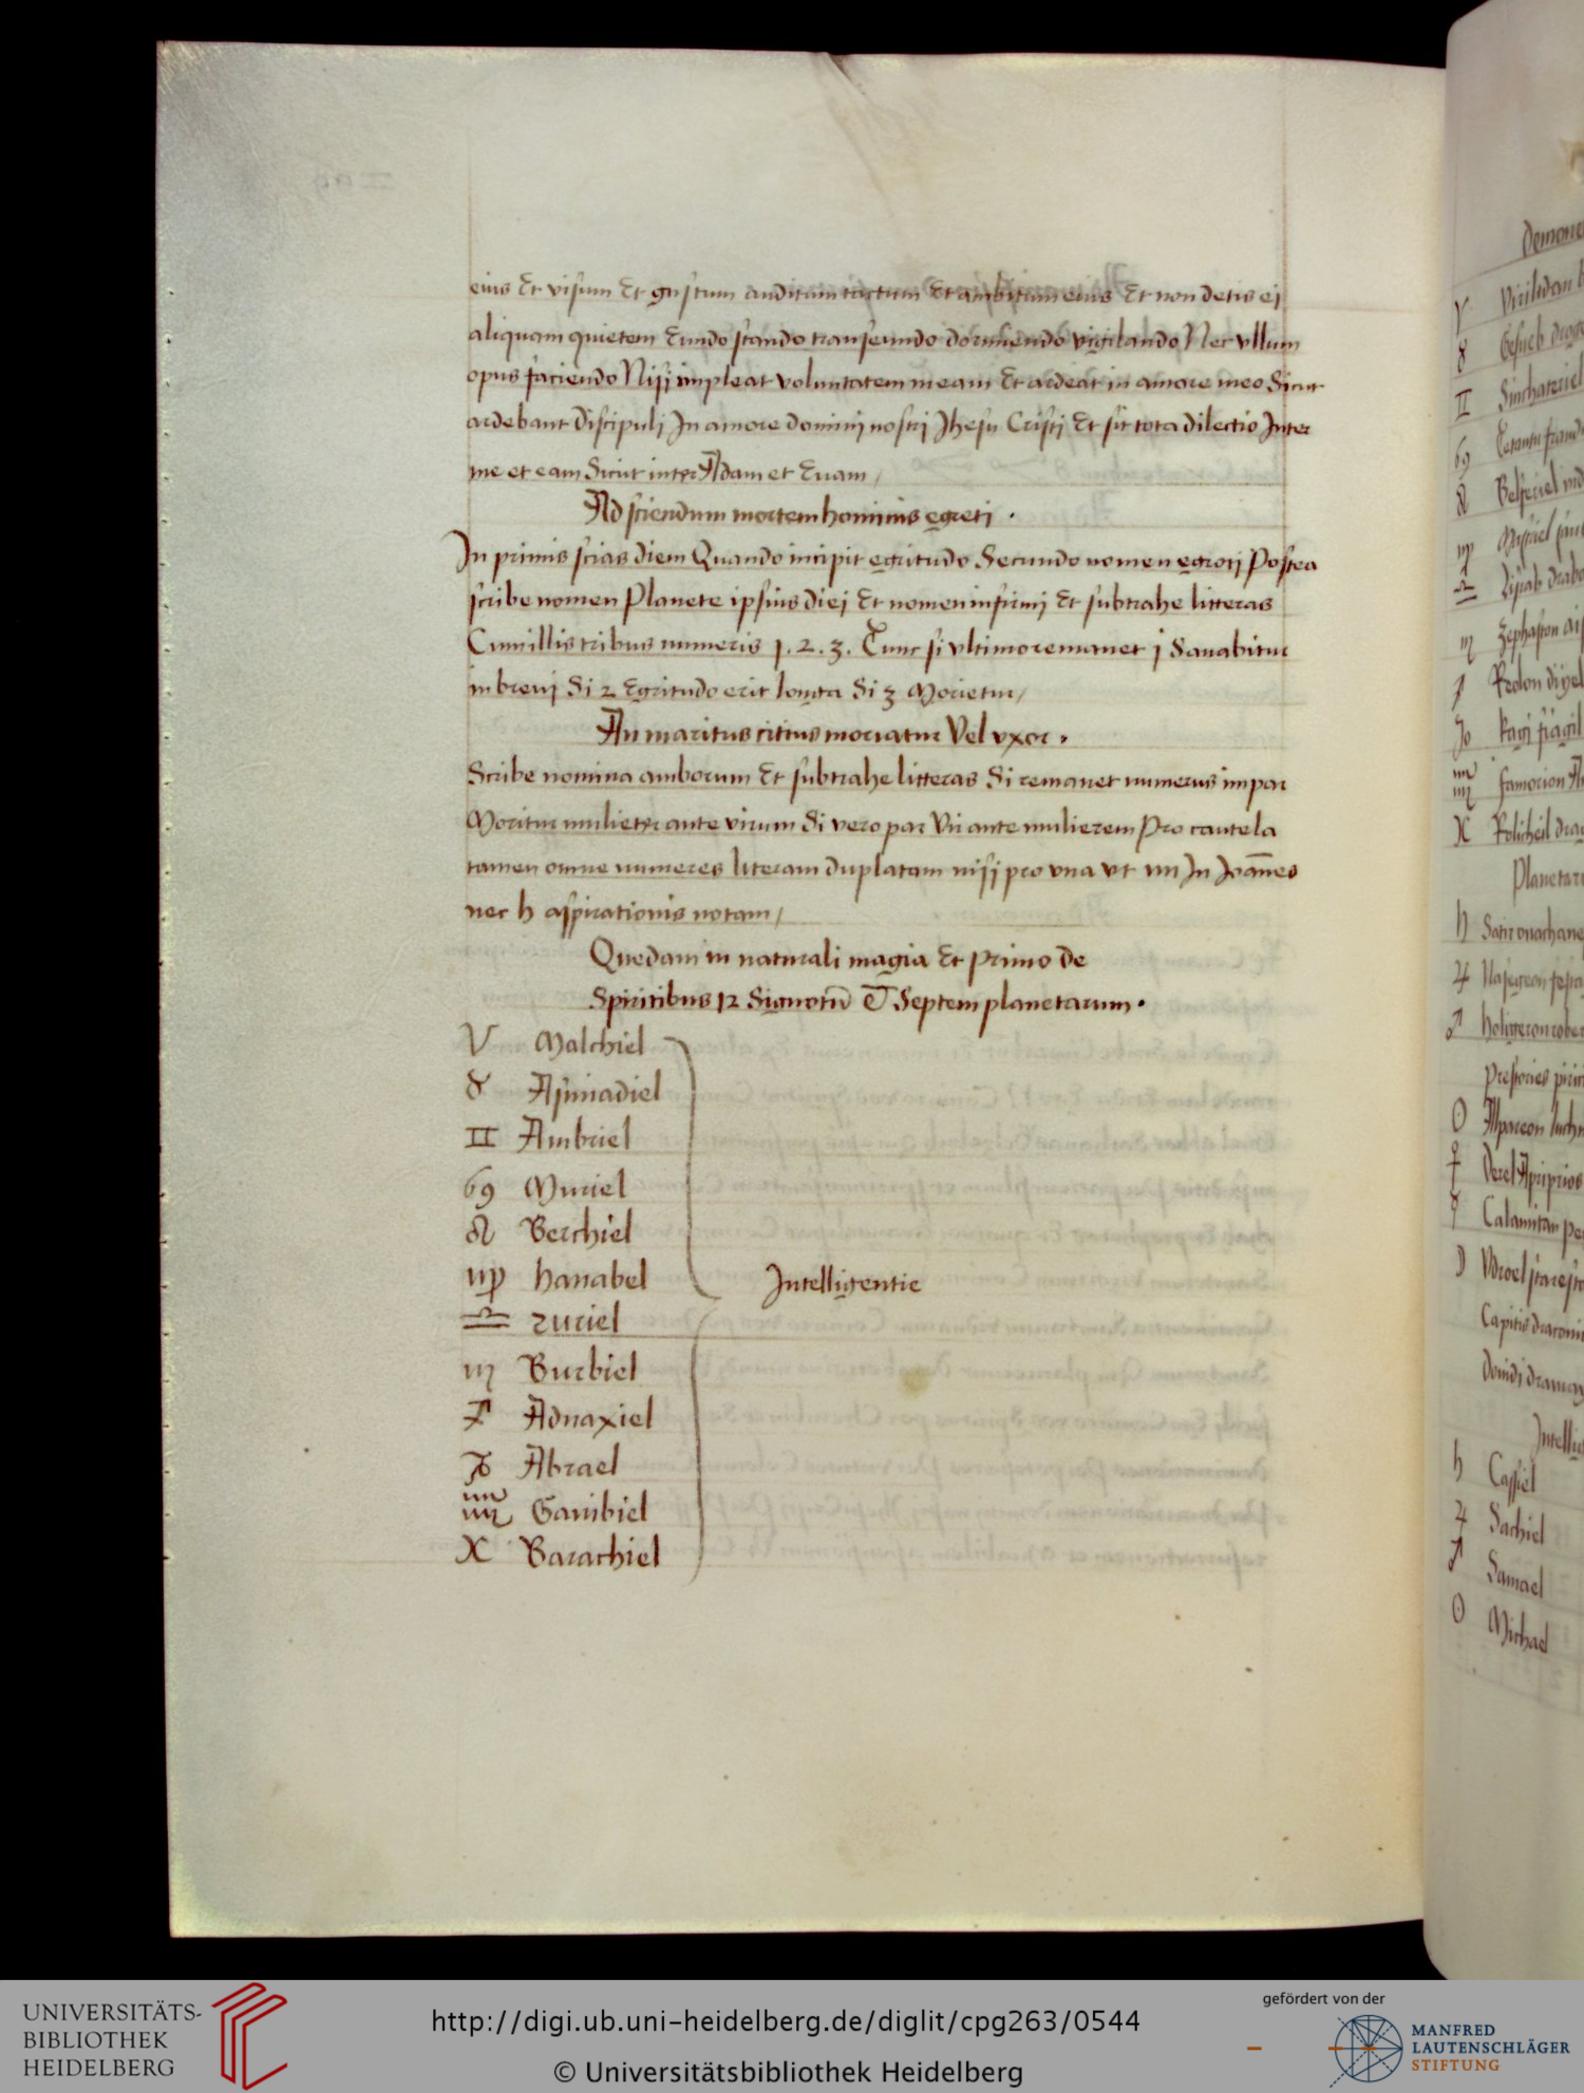 eius Et visum Et gustum auditum tactum Et ambitum eius Et non detis ei
aliquam quietem Eundo stando transeundo dormiendo vigilando Nec vllum
opus faciendo Nisi impleat voluntatem meam Et ardeat in amore meo Sicut
ardebant discipuli In amore domini nostri Jhesu Cristi Et sit tota dilectio Inter
me et eam Sicut inter Adam et Euam /
Ad sciendum mortem hominis egreti .
In primis scias diem Quando incipit egritudo Secundo nomen egroti Postea
scribe nomen Planete ipsius diei Et nomen infirmi Et subtrahe litteras
Cum illis tribus numeris 1 . 2 . 3 . Tunc si vltimo remanet j Sanabitur
in breui Si 2 Egritudo erit longa Si 3 Morietur /
An maritus citius moriatur Vel vxor .
Scribe nomina amborum Et subtrahe litteras Si remanet numerus impar
Moritur mulier ante virum Si vero par Vir ante mulierem Pro cautela
tamen omne numeres literam duplatam nisi pro vna vt nn In Joānes
nec h aspirationis notam /
Quedam in naturali magia Et Primo de
Spiritibus 12 Signorū Et Septem planetarum .
♈ Malchiel
♉ Asmadiel
♊ Ambriel
♋ Muriel
♌ Verchiel
♍ hanabel
Intelligentie
♎ zuriel
♏ Burbiel
♐ Adnaxiel
♑ Abrael
♒ Gambiel
♓ Barachiel
Demone
♄ Cassiel
♃ Sachiel
♂ Samael
☉ Michael
UNIVERSITÄTS-
BIBLIOTHEK
HEIDELBERG
http://digi.ub.uni-heidelberg.de/diglit/cpg263/0544
© Universitätsbibliothek Heidelberg
gefördert von der
MANFRED
LAUTENSCHLÄGER
STIFTUNG